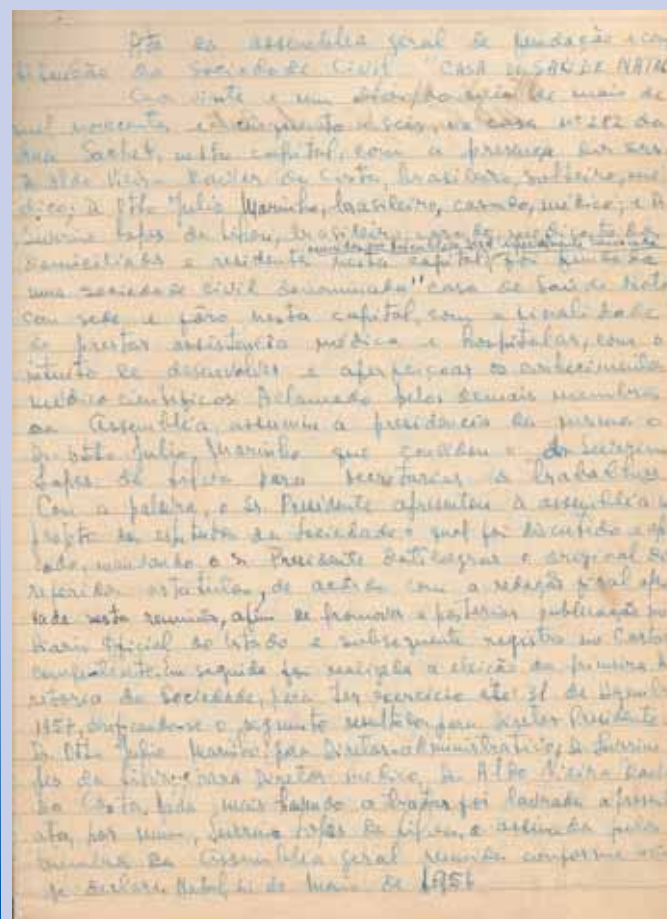 Ata da assembléia geral de fundação e con
tituição da Sociedade Civil "CASA DE SAÚDE NATAL
Aos vinte e um dias do mês de maio de
mil novecentos e cinquenta e seis, na casa nº 282 da
Rua Sachet, nesta capital, com a presença dos srs.
Dr Aldo Vieira Xavier da Costa, brasileiro, solteiro, mé
dico; Dr Otto Julio Marinho, brasileiro, casado, médico; e Dr
Lopes da brasileiro, casado,
domiciliados e residentes nesta capital, foi fundada
uma sociedade civil denominada "Casa de Saúde Nata
com sede e fôro nesta capital, com a finalidade
de prestar assistencia médica e hospitalar, com o
intuito de desenvolver e aperfeiçoar os conhecimentos
médico cientificos. Aclamado pelos demais membros
da Assembléia, assumiu a presidência da mesma o
Dr Otto Julio Marinho que convidou o dr
Lopes da para secretariar os trabalhos.
Com a palavra, o Sr. Presidente apresentou à assembléia o
projeto de estatutos da Sociedade o qual foi discutido e
mandando o Sr Presidente datilografar o original do
referido estatutos, de acôrdo com a redação final
nesta reunião, afim de promover a posterior publicação no
Diario Oficial do Estado e subsequente registro no Cartó
competente. Em seguida foi realizada a eleição da primeira di
retoria da Sociedade, para ter exercicio até 31 de Dezemb
1957, verificando-se o seguinte resultado: para Diretor Presidente
Dr. Otto Julio Marinho; para Diretor Administrativo, Dr
pes da para Diretor medico, Dr Aldo Vieira Xavi
da Costa. Nada mais havendo a tratar foi lavrada a presen
ata, por mim, Lopes da e assinada pelos
membros da Assembléia geral reunida conforme
se declara. Natal, 21 de Maio de 1956